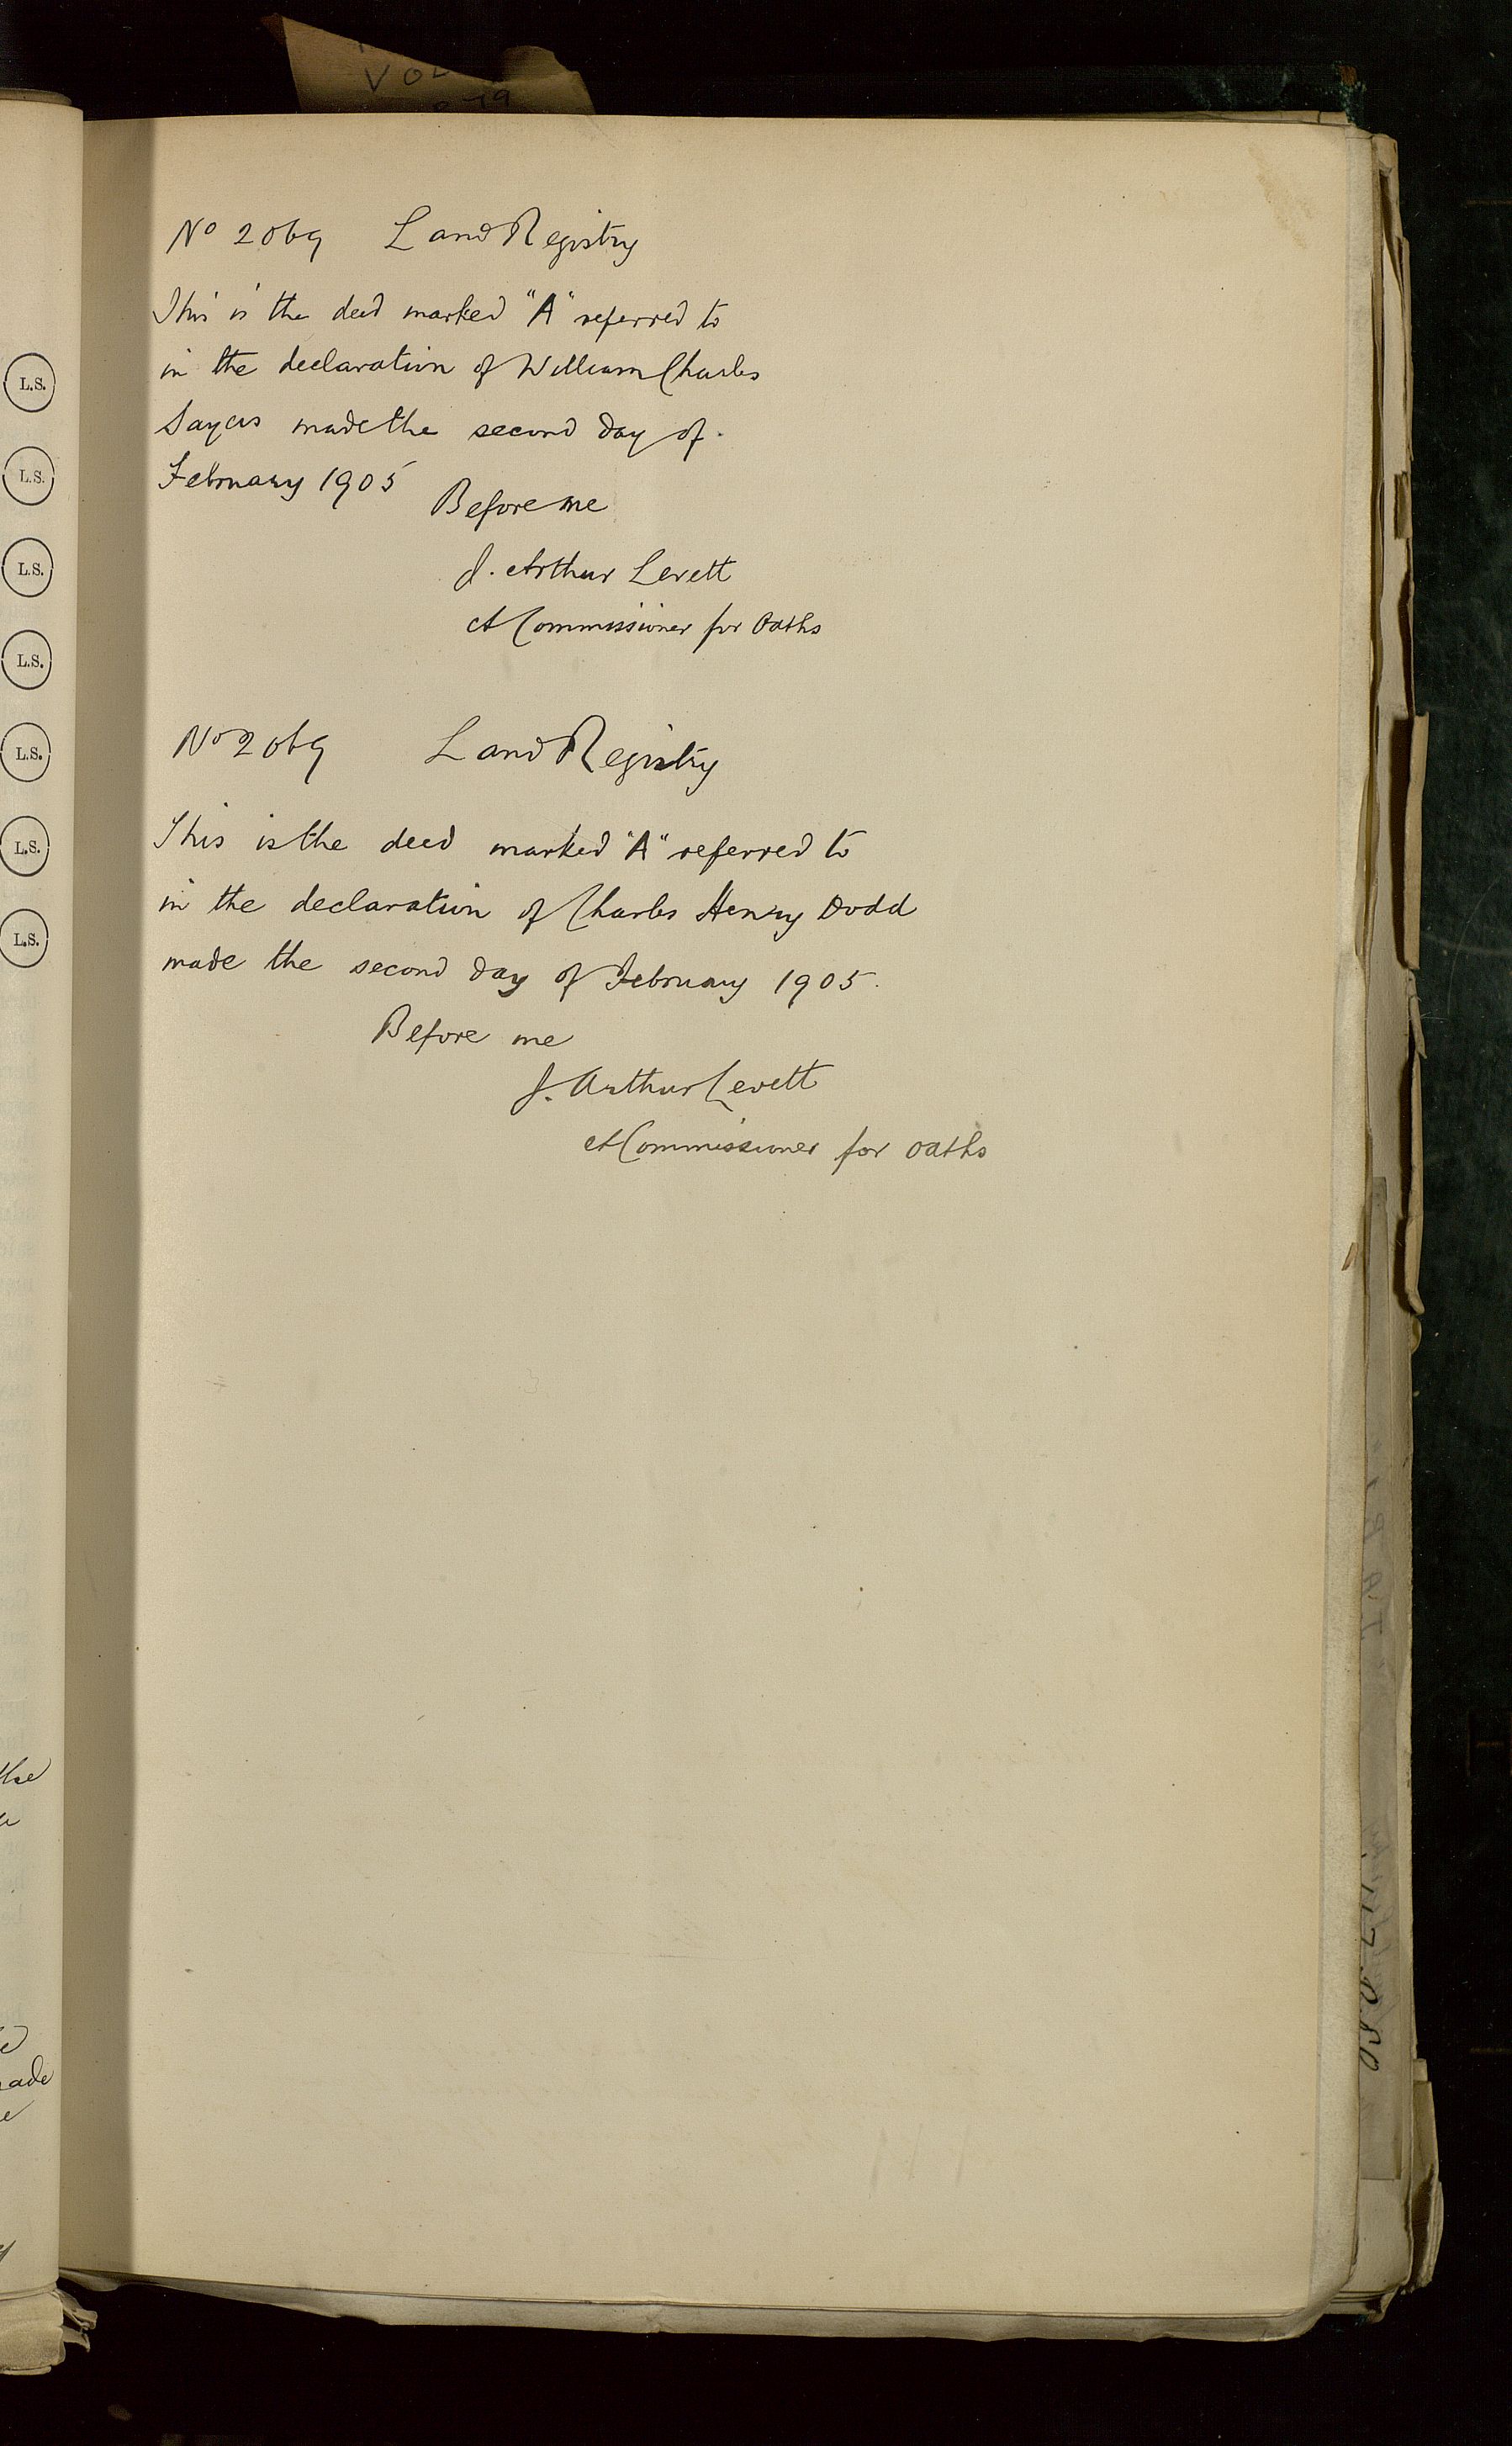 VOL
No 2069 Land Registry
This is the deed marked "A" referred to
in the declaration of William Charles
Sayers made the second day of
February 1905
Before me
J. Arthur Levett
A Commissioner for Oaths
No 2069 Land Registry
This is the deed marked "A" referred to
in the declaration of Charles Henry Dodd
made the second day of February 1905.
Before me
J. Arthur Levett
A Commissioner for Oaths
L.S.
L.S.
L.S.
L.S.
L.S.
L.S.
L.S.
the